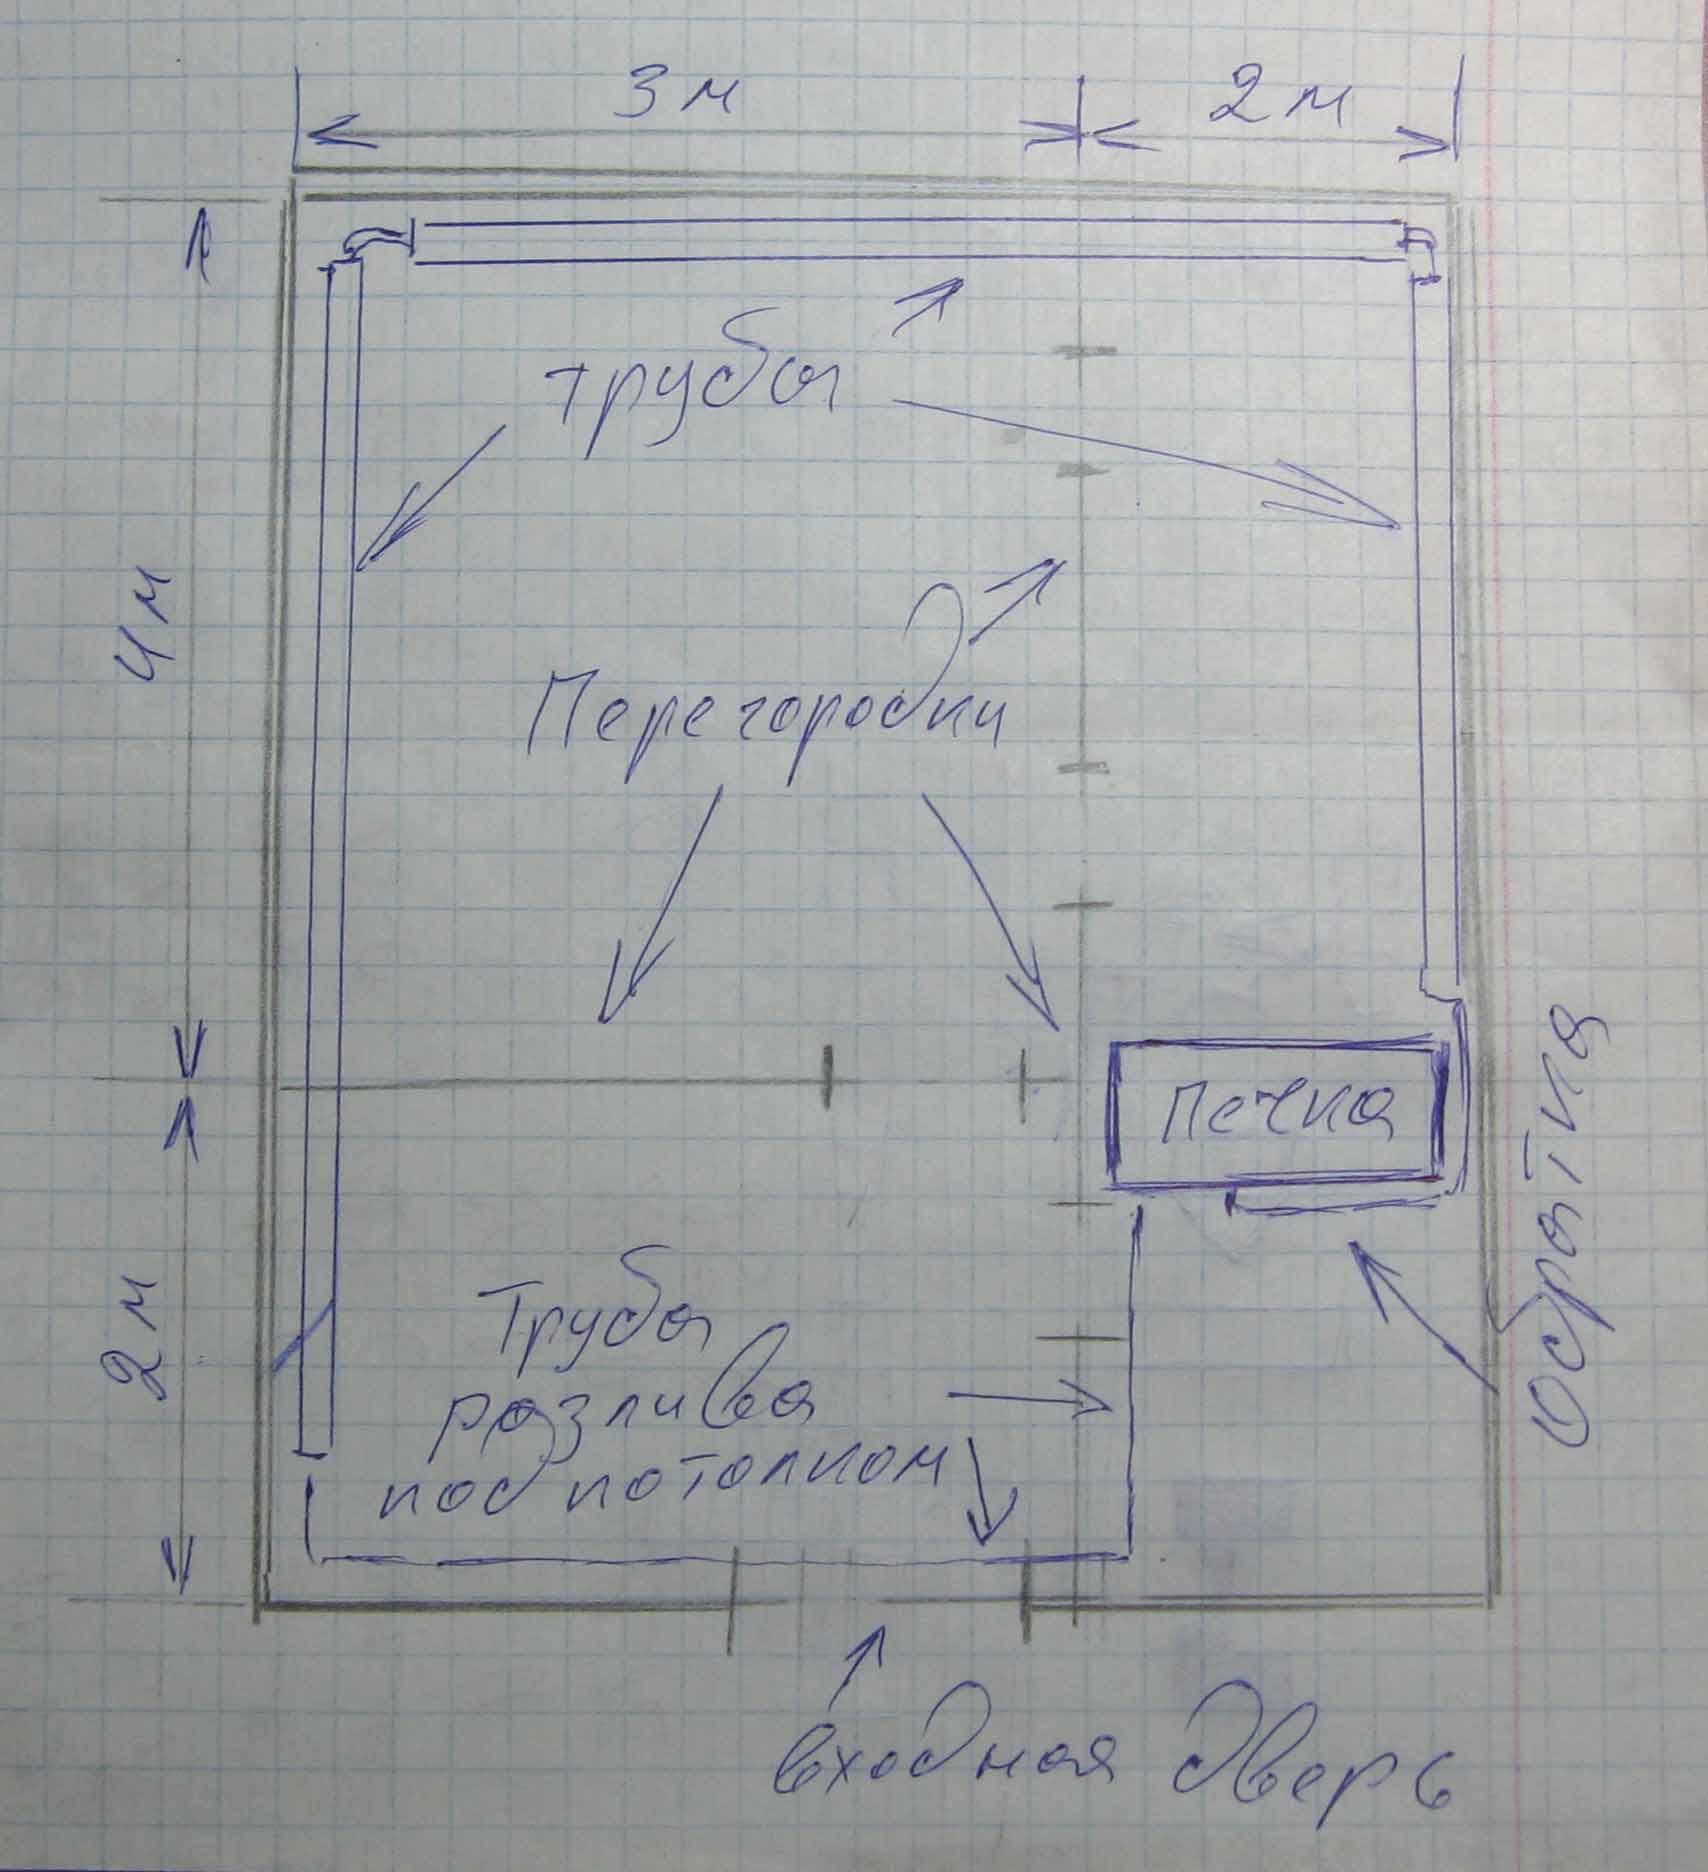 3м
2м
трубы
4м
Перегородки
Печка
Обратка
2м
Труба
разлива
под потолком
входная дверь